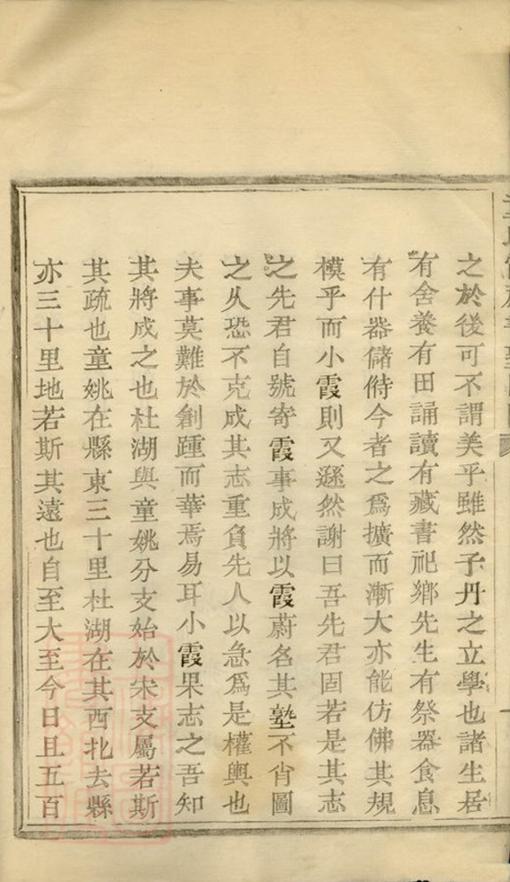 之於後可不謂美乎雖然子丹之立學也諸生居
有舍養有田誦讀有藏書祀鄉先生有祭器食息
有什器儲偫今者之爲擴而漸大亦能仿佛其規
模乎而小霞則又遜然謝曰吾先君固若是其志
之先君自號寄霞事成將以霞蔚名其塾不肖圖
之久恐不克成其志重負先人以急爲是權輿也
夫事莫難於創踵而華焉易耳小霞果志之吾知
其將成之也杜湖與童姚分支始於宋支屬若斯
其疏也童姚在縣東三十里杜湖在其西北去縣
亦三十里地若斯其遠也自至大至今日且五百